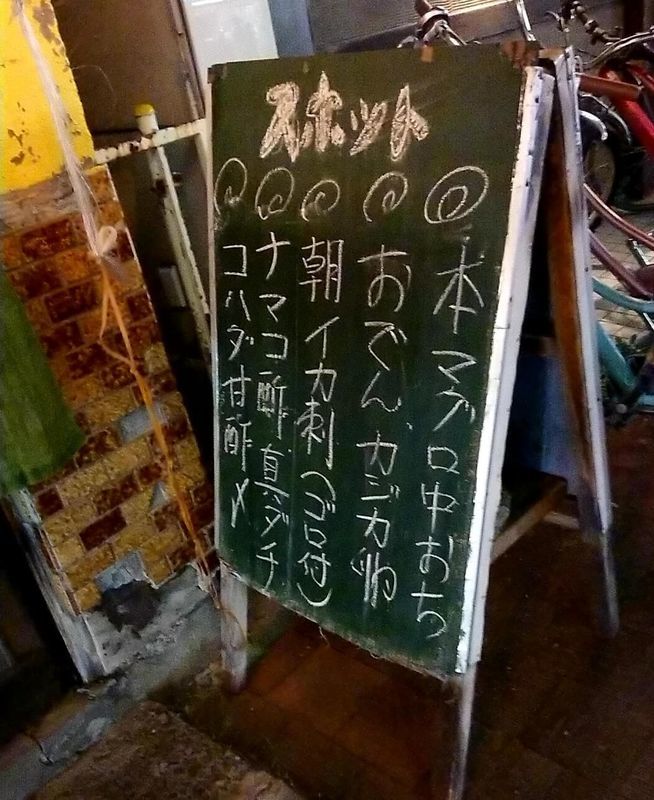 スポット
本マグロ中おち
おでん カジカ卵
朝イカ刺(ゴロ付)
ナマコ酢 真ダチ
コハダ甘酢〆